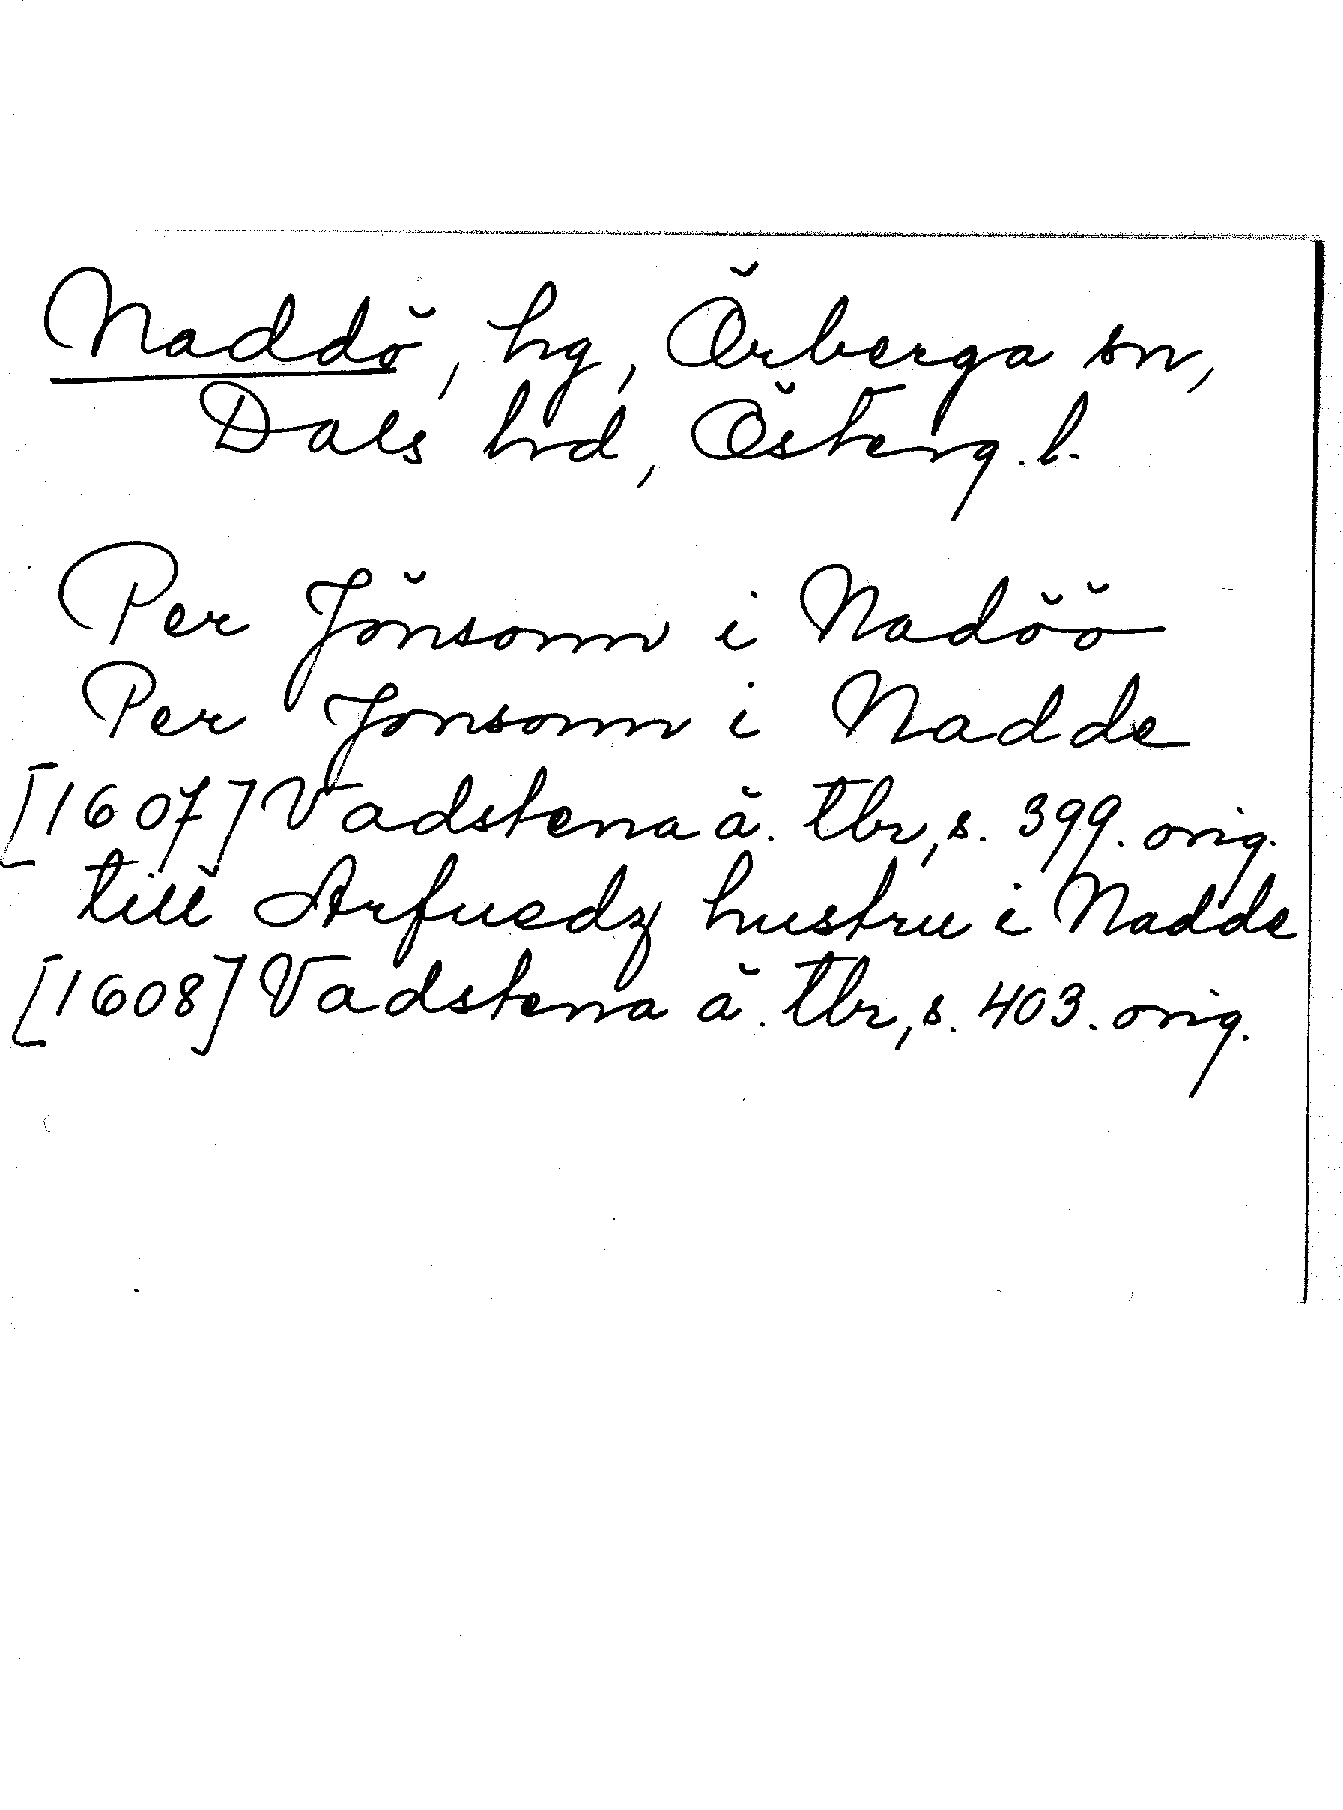 Naddö, hg, Örberga sn,
Dals hrd, Österg. l.
Per Jönsonn i Nadöö
Per Jonsonn i Nadde
[1607] Vadstena ä. tbr, s. 399. orig.
till Arfuedz hustru i Nadde
[1608] Vadstena ä. tbr, s. 403. orig.